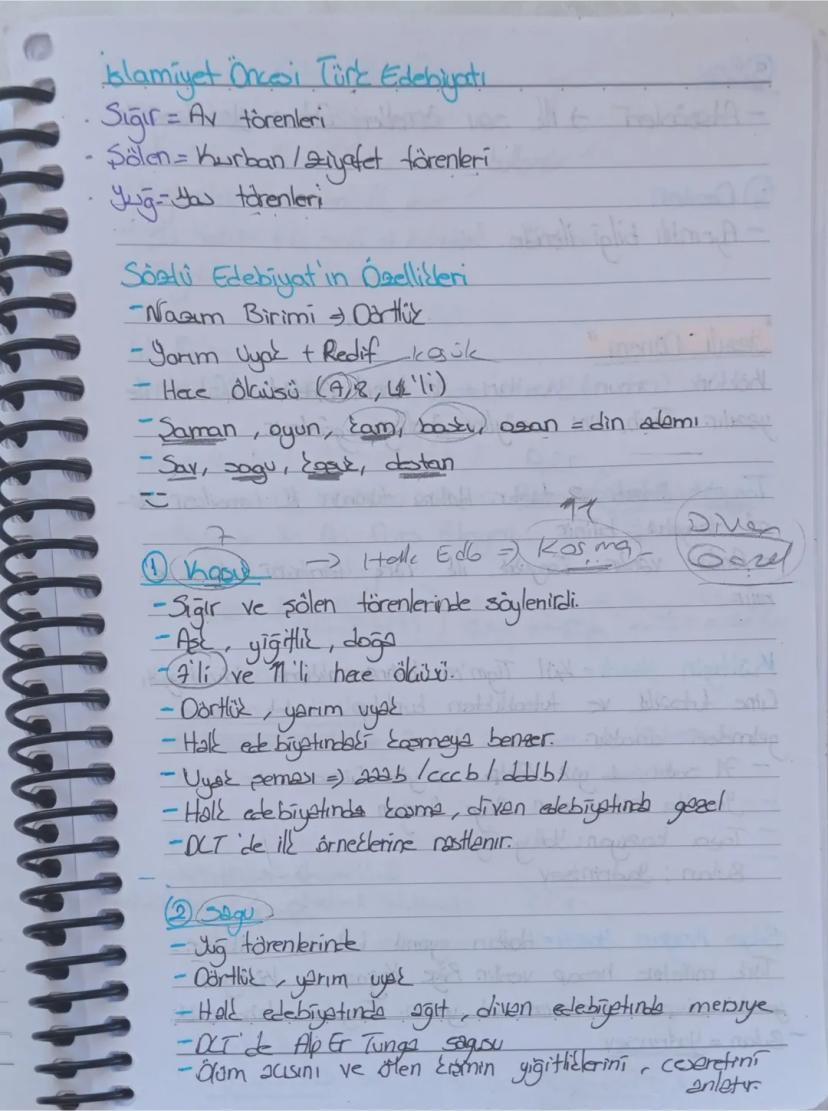 İslamiyet Öncesi Türk Edebiyatı
· Sığır = Av törenleri
· Şölen = Kurban / ziyafet törenleri
· Yuğ = Yas törenleri
Sözlü Edebiyat'ın Özellikleri
- Nazım Birimi → Dörtlük
- Yarım Uyak + Redif koşuk
- Hece Ölçüsü (7, 8, 12'li)
- Şaman, oyun, kam, baskı, ozan = din adamı
- Sav, sagu, koşuk, destan
7 11
① Koşuk → Halk Edb → Koşma Divan Gazel
- Sığır ve şölen törenlerinde söylenirdi.
- Aşk, yiğitlik, doğa
- 7'li ve 11'li hece ölçüsü.
- Dörtlük, yarım uyak
- Halk edebiyatındaki koşmaya benzer.
- Uyak şeması → aaab / cccb / dddb /
- Halk edebiyatında koşma, divan edebiyatında gazel
- DLT'de ilk örneklerine rastlanır.
② Sagu
- Yuğ törenlerinde
- Dörtlük, yarım uyak
- Halk edebiyatında ağıt, divan edebiyatında mersiye
- DLT'de Alp Er Tunga sagusu
- Ölüm acısını ve ölen kişinin yiğitliklerini, cesaretini
anlatır.